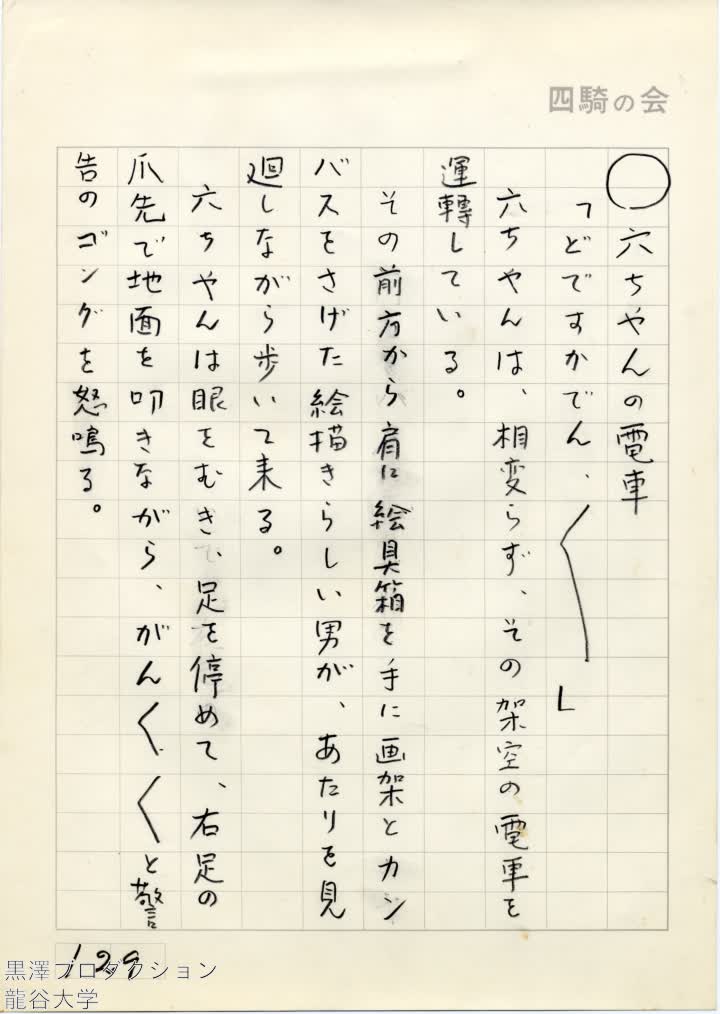 四騎の会
○六ちやんの電車
「どですかでん、〱」
六ちやんは、相変らず、その架空の電車を
運轉している。
その前方から肩に絵具箱を手に画架とカン
バスをさげた絵描きらしい男が、あたりを見
廻しながら歩いて来る。
六ちやんは眼をむき、足を停めて、右足の
爪先で地面を叩きながら、がん〱〱と警
告のゴングを怒鳴る。
129
黒澤プロダクション
龍谷大学